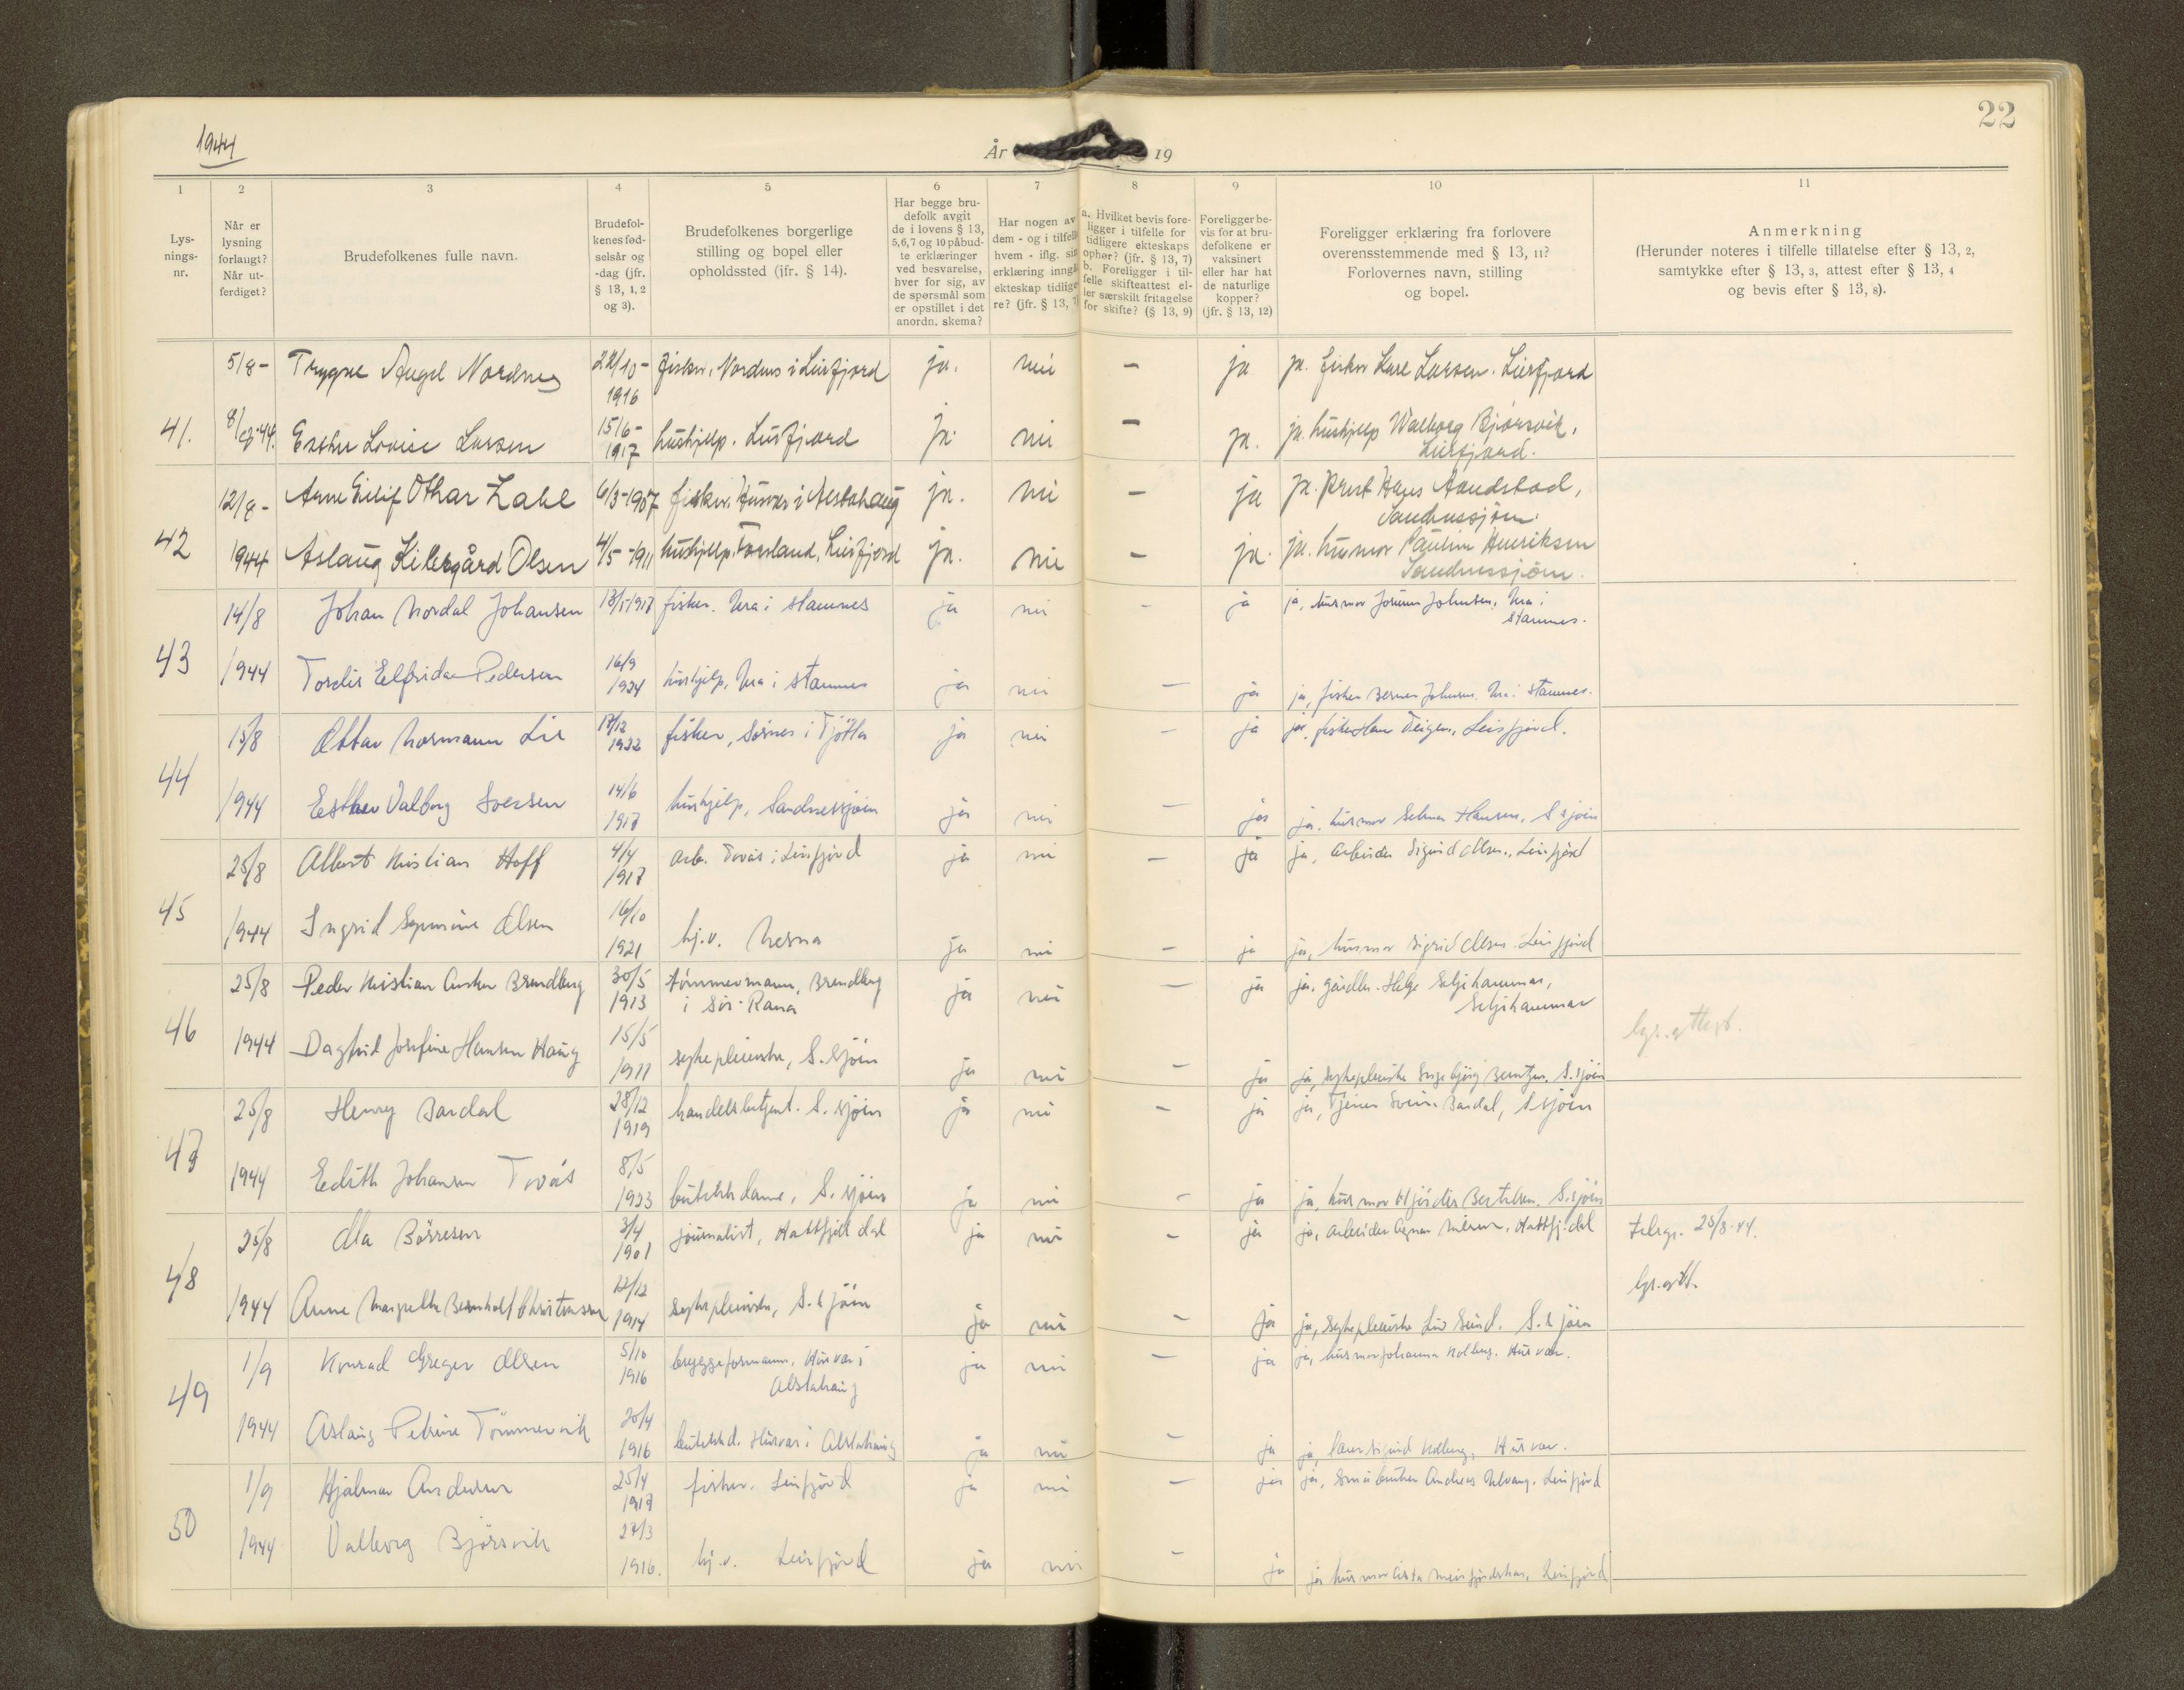 22
1944
År 19
1 2 3 4 5 6 7 8 9 10 11
Lys-
nings-
nr.
Når er
lysning
forlangt?
Når ut-
ferdiget?
Brudefolkenes fulle navn.
Brudefol-
kenes fød-
selsår og
-dag (jfr.
§ 13, 1, 2
og 3).
Brudefolkenes borgerlige
stilling og bopel eller
opholdssted (jfr. § 14).
Har begge bru-
defolk avgit
de i lovens § 13,
5, 6, 7 og 10 påbud-
te erklæringer
ved besvarelse,
hver for sig, av
de spørsmål som
er opstillet i det
anordn. skema?
Har nogen av
dem - og i tilfelle
hvem - iflg. sin
erklæring inngåt
ekteskap tidlige-
re? (jfr. § 13, 7
a. Hvilket bevis fore-
ligger i tilfelle for
tidligere ekteskaps
ophør? (jfr. § 13, 7)
b. Foreligger i til-
felle skifteattest el-
ler særskilt fritagelse
for skifte? (§ 13, 9)
Foreligger be-
vis for at bru-
defolkene er
vaksinert
eller har hat
de naturlige
kopper?
(jfr. § 13, 12)
Foreligger erklæring fra forlovere
overensstemmende med § 13, 11?
Forlovernes navn, stilling
og bopel.
Anmerkning
(Herunder noteres i tilfelle tillatelse efter § 13, 2,
samtykke efter § 13, 3, attest efter § 13, 4
og bevis efter § 13, 8).
5/8- Trygve Nordnes 1916 fisker, Nordnes i Leirfjord ja. nei - ja ja. fisker Kare Larsen. Leirfjord
41. Esther Lovise Larsen 15/6-1917 hushjelp. Leirfjord ja. nei - ja. ja. hushjelp Walborg Bjørsvik,
Leirfjord.
12/8- Arne Eilif Othar Zahl 6/3-1907 fisker, Husvær i Alstahaug ja. nei - ja ja. Prest Hans Aandstad,
Sandnessjøen.
42 1944 Aslaug Kildegård Olsen 4/5-1911 hushjelp. Forsland, Leirfjord ja. nei - ja. ja. husmor Pauline Henriksen
Sandnessjøen.
14/8 Johan Nordal Johansen 13/5-1917 fisker. Ura i Stamnes ja nei - ja ja, husmor Jorunn Johansen, Ura i
Stamnes.
43 1944 Tordis Elfrida Pedersen 16/9 1924 hushjelp, Ura i Stamnes ja nei - ja ja, fisker Johansen. Ura i Stamnes.
15/8 Ottar Normann Lie 17/12 1922 fisker, Sørnes i Tjøtta ja nei - ja ja, fisker Hans Teigen, Leirfjord.
44 1944 Esther Valborg Iversen 14/6 1917 hushjelp, Sandnessjøen ja nei - ja ja, husmor Selma Hansen, S.sjøen
25/8 Albert Kristian Hoff 4/4 1917 arb. Tovås i Leirfjord ja nei - ja ja, arbeider Sigurd Olsen, Leirfjord
45 1944 Ingrid Olsen 16/10 1921 hj.v. Nesna ja nei - ja ja, husmor Sigrid Olsen. Leirfjord
25/8 Peder Kristian Anker Brendberg 30/5 1913 tømmermann, Brendberg
i Sør-Rana ja nei - ja ja, gårdbr. Helge Seljehammar,
Seljehammar
46 1944 Dagfrid Josefine Hansen Haug 15/5 1911 sykepleierske, S.sjøen ja nei - ja ja, sykepleierske Ingebjørg Berntzen. S.sjøen
25/8 Henry Bardal 28/12 1919 handelsbetjent. S.sjøen ja nei - ja ja, Svein Bardal, S.sjøen
47 1944 Edith Johansen Tovås 8/5 1923 butikkdame, S.sjøen ja nei - ja ja, husmor Hjørdis Bertelsen. S.sjøen
25/8 Ola Børresen 3/4 1901 journalist, Hattfjelldal ja nei - ja ja, arbeider Agnar Nilsen, Hattfj.dal telegr. 25/8-44.
48 1944 Anne Margrethe Christensen 12/12 1914 sykepleierske, S.sjøen ja nei - ja ja, sykepleierske Liv Sund. S.sjøen
1/9 Konrad Greger Olsen 5/10 1916 bryggeformann, Husvær i
Alstahaug ja nei - ja ja, husmor Johanna Kolberg. Husvær.
49 1944 Aslaug Petrine Tømmervik 20/4 1916 butikkd. Husvær i Alstahaug ja nei - ja ja, Sigurd Kolberg, Husvær.
1/9 Hjalmar Andersen 25/4 1917 fisker. Leirfjord ja nei - ja ja, småbruker Andreas Ulvang. Leirfjord
50 1944 Valborg Bjørsvik 27/3 1916. hj.v. Leirfjord ja nei - ja ja husmor Asta Leirfjord